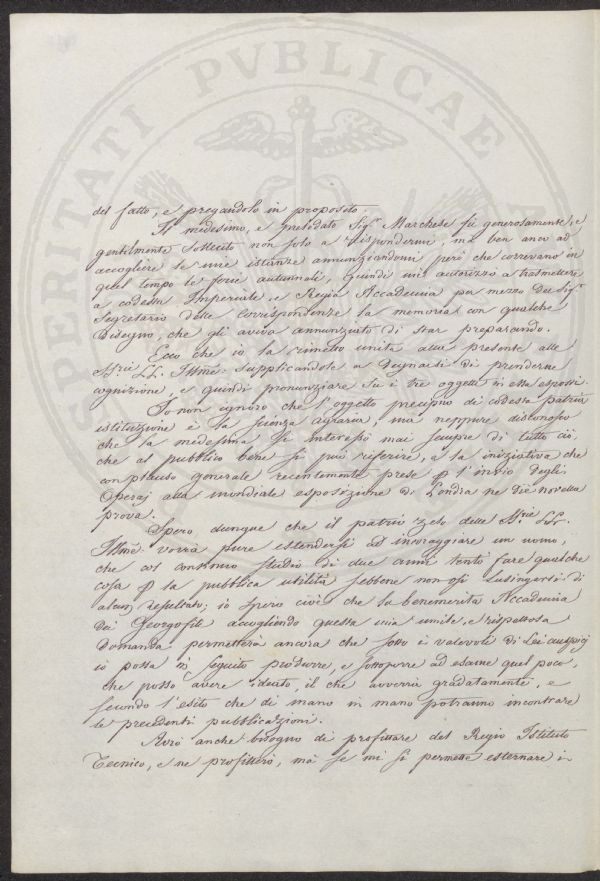 PROSPERITATI PVBLICAE
del fatto, e pregandolo in proposito.
Il medesimo, e prelodato Sig.r Marchese fù generosamente, e
gentilmente sollecito non solo a rispondermi, ma ben anco ad
accogliere le mie istanze annunziandomi però che correvano in
quel tempo le ferie autunnali, quindi mi autorizzò a trasmettere
a codesta Imperiale, e Regia Accademia per mezzo del Sig.r
Segretario delle Corrispondenze la memoria con qualche
disegno, che gli aveva annunziato di star preparando.
Ecco che io la rimetto unita alla presente alle
LL. Ill.me supplicandole a degnarsi di prenderne
cognizione, e quindi pronunziare su i tre oggetti in essa esposti.
Io non ignoro che l'oggetto precipuo di codesta patria
istituzione è la scienza agraria, ma neppure disconosco
che la medesima si interessò mai sempre di tutto ciò,
che al pubblico bene si può riferire, e la iniziativa che
con plauso generale recentemente prese p l'invio degli
Operaj alla mondiale esposizione di Londra ne diè novella
prova.
Spero dunque che il patrio zelo delle LL.
Ill.me vorrà pure estendersi ad incoraggiare un uomo,
che con continuo studio di due anni tentò fare qualche
cosa p la pubblica utilità sebbene non osi lusingarsi di
alcun resultato; io spero cioè che la benemerita Accademia
dei Georgofili accogliendo questa mia umile, e rispettosa
domanda permetterà ancora che sotto i valevoli di Lei auspicj
io possa in seguito produrre, e sottoporre ad esame quel poco,
che posso avere ideato, il che avverrà gradatamente, e
secondo l'esito che di mano in mano potranno incontrare
le precedenti pubblicazioni.
Avrò anche bisogno di profittare del Regio Istituto
Tecnico, e ne profitterò, mà se mi si permette esternare in